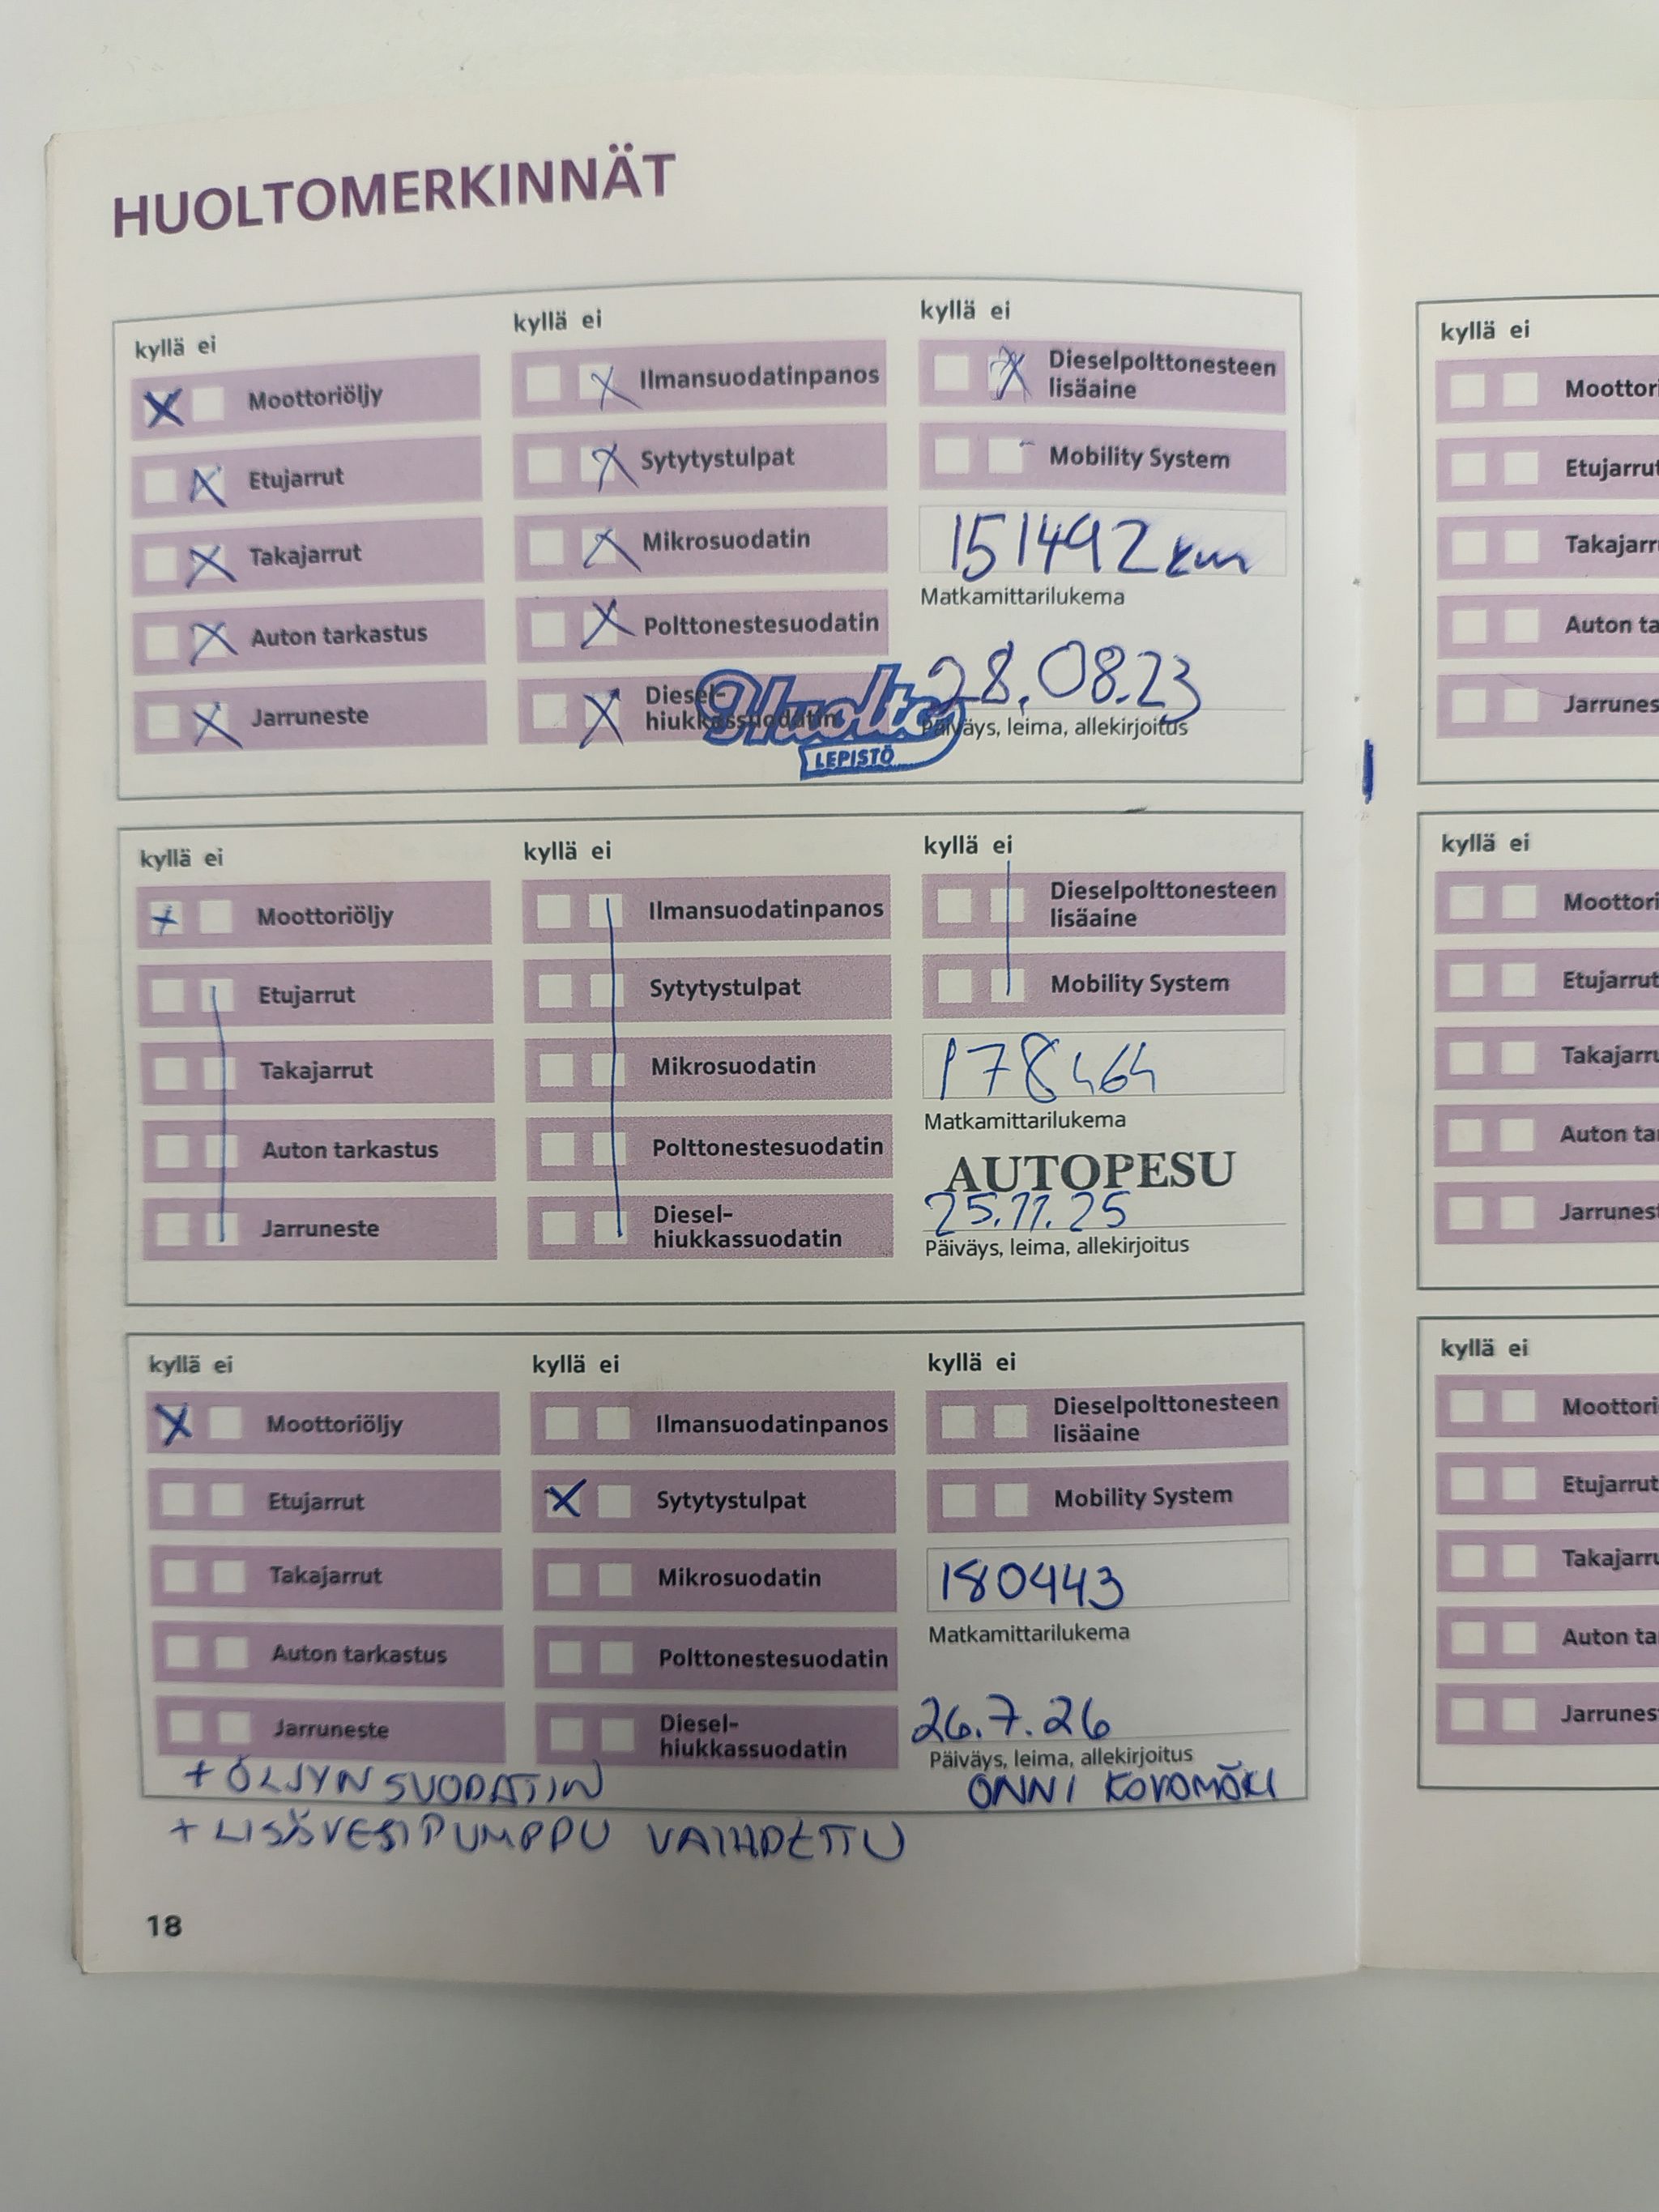 HUOLTOMERKINNÄT
kyllä ei
Moottoriöljy
Etujarrut
Takajarrut
Auton tarkastus
Jarruneste
kyllä ei
Ilmansuodatinpanos
Sytytystulpat
Mikrosuodatin
Polttonestesuodatin
Diesel-
hiukkassuodatin
kyllä ei
Dieselpolttonesteen
lisäaine
Mobility System
151492 km
Matkamittarilukema
28.08.23
Päiväys, leima, allekirjoitus
Huolto
LEPISTÖ
kyllä ei
Moottoriöljy
Etujarrut
Takajarrut
Auton tarkastus
Jarruneste
kyllä ei
Ilmansuodatinpanos
Sytytystulpat
Mikrosuodatin
Polttonestesuodatin
Diesel-
hiukkassuodatin
kyllä ei
Dieselpolttonesteen
lisäaine
Mobility System
178464
Matkamittarilukema
AUTOPESU
25.11.25
Päiväys, leima, allekirjoitus
kyllä ei
Moottoriöljy
Etujarrut
Takajarrut
Auton tarkastus
Jarruneste
kyllä ei
Ilmansuodatinpanos
Sytytystulpat
Mikrosuodatin
Polttonestesuodatin
Diesel-
hiukkassuodatin
kyllä ei
Dieselpolttonesteen
lisäaine
Mobility System
180443
Matkamittarilukema
26.7.26
Päiväys, leima, allekirjoitus
ONNI KOVAMÄKI
+ ÖLJYN SUODATIN
+ LISÄVESIPUMPPU VAIHDETTU
18
kyllä ei
Moottori
Etujarrut
Takajarr
Auton ta
Jarrunes
kyllä ei
Moottori
Etujarrut
Takajarru
Auton ta
Jarrunest
kyllä ei
Moottori
Etujarrut
Takajarru
Auton ta
Jarrunes